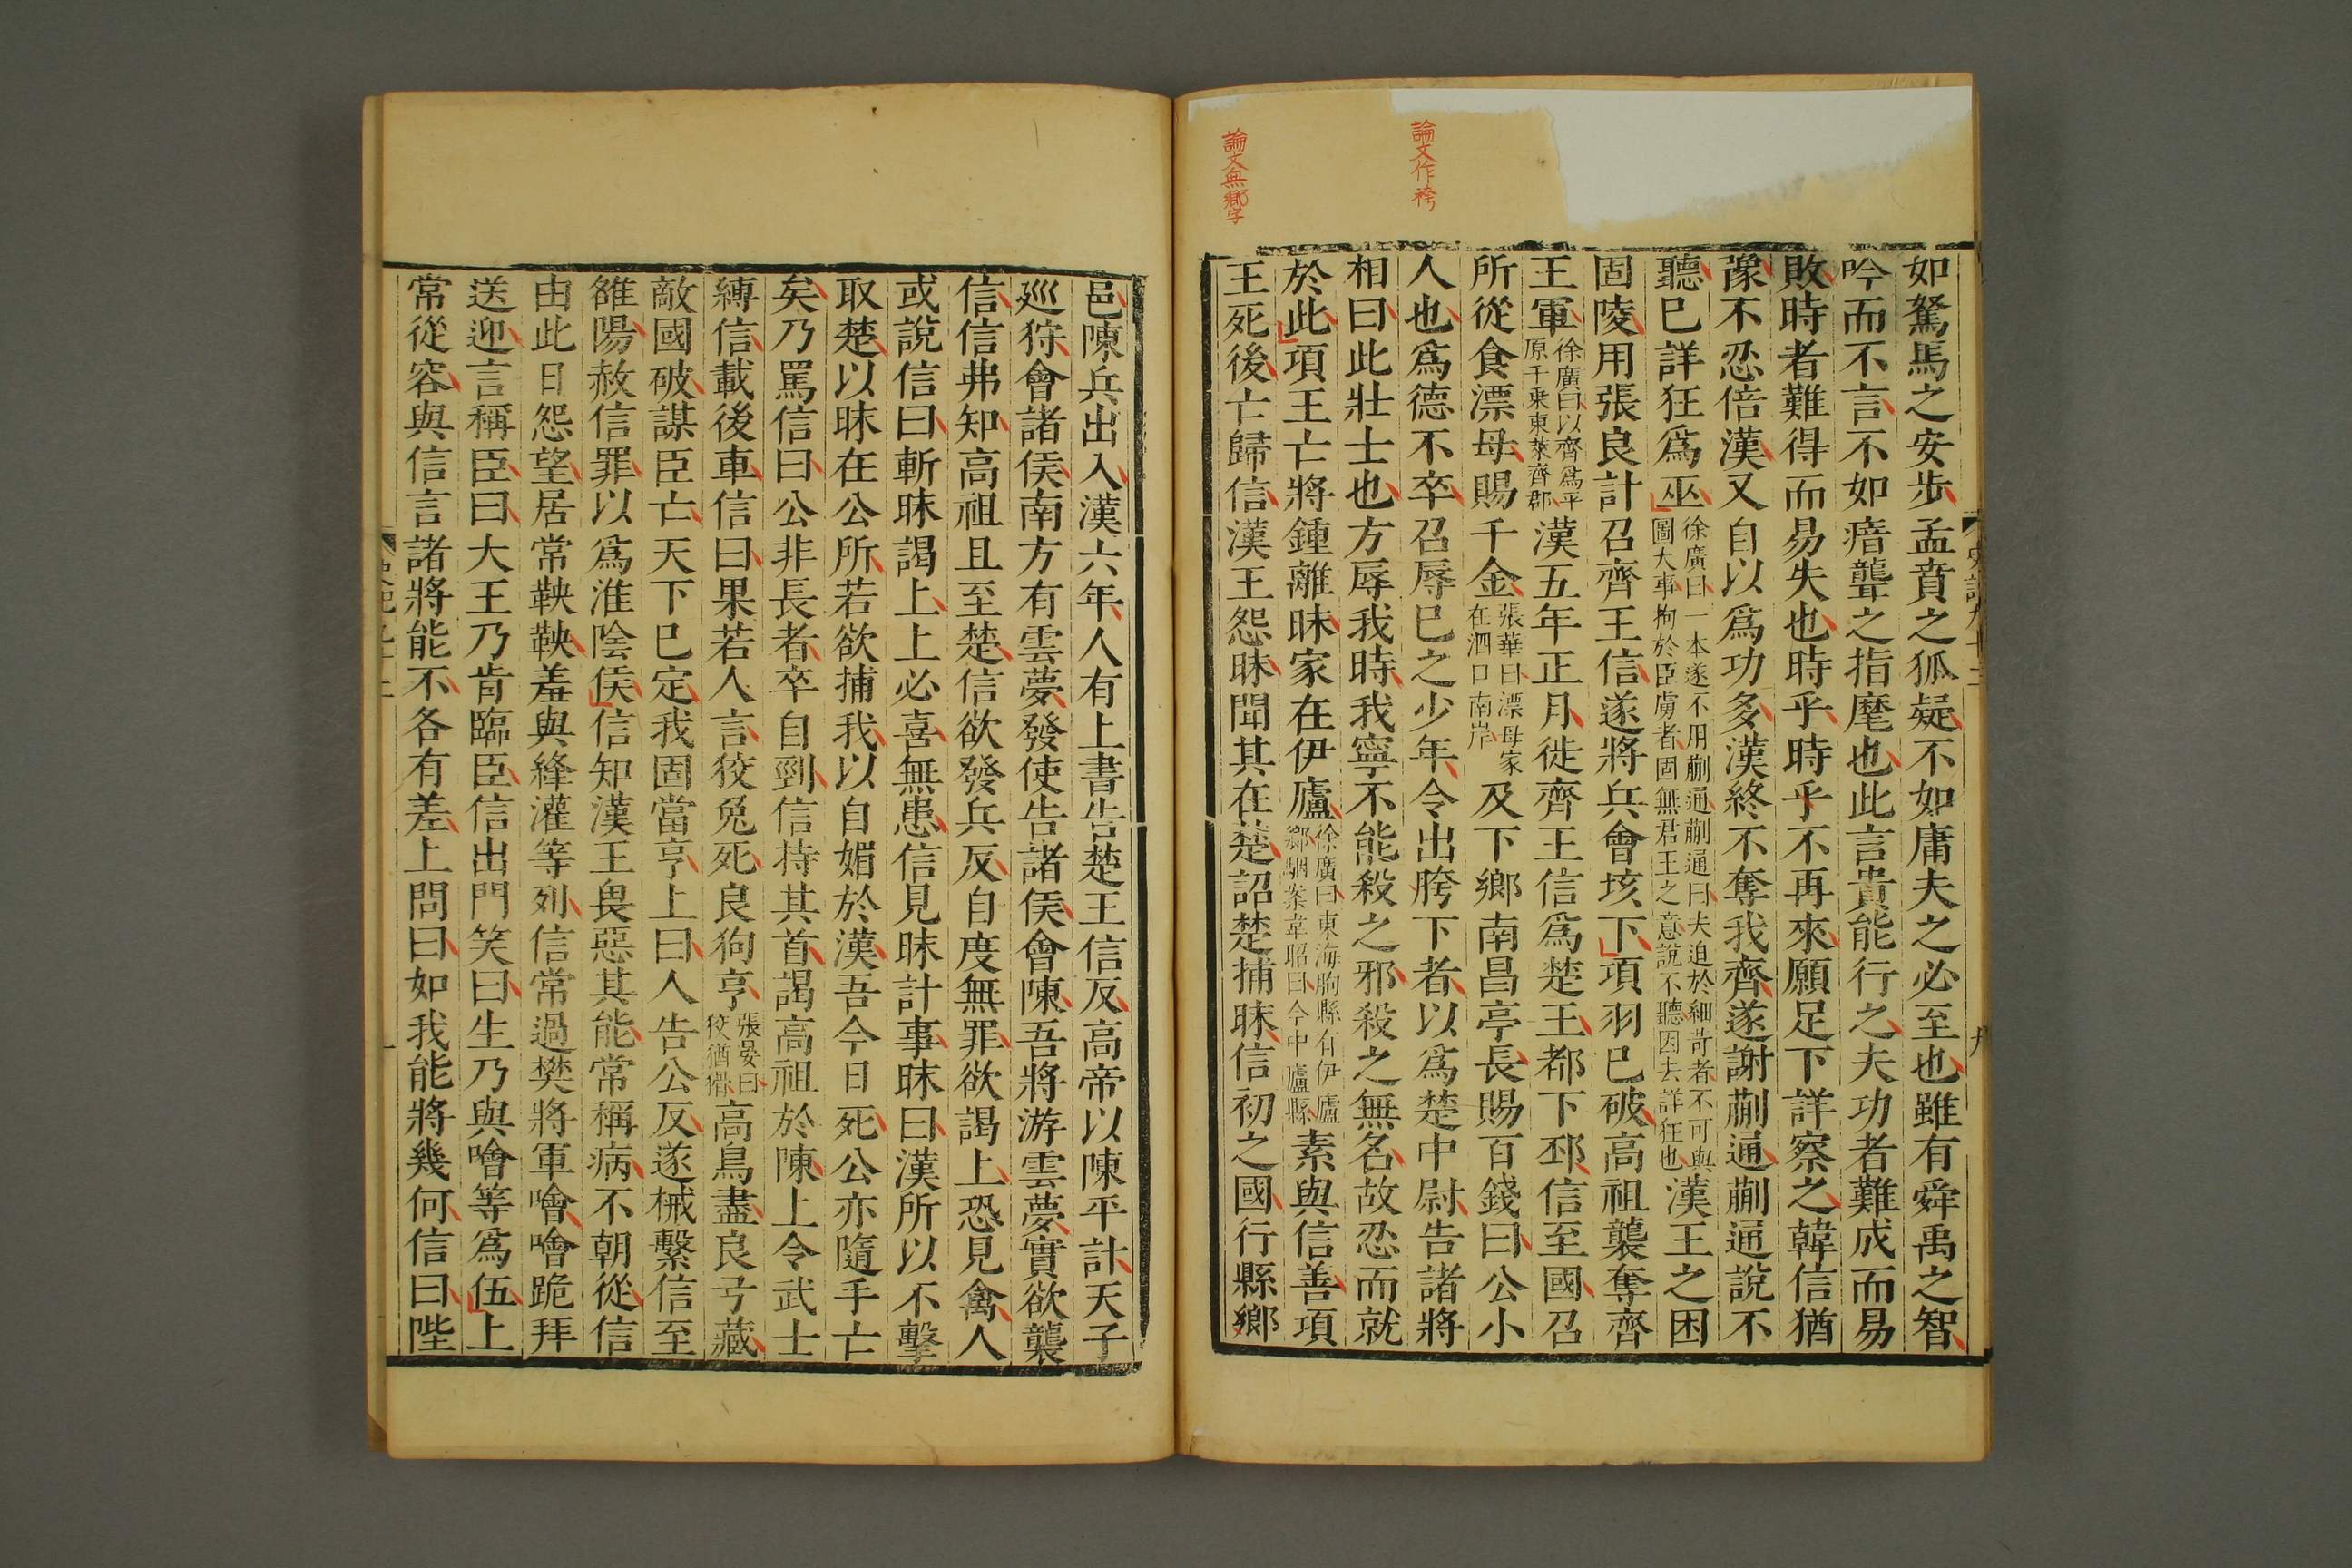 論文作袴
論文無鄉字
如駑馬之安步孟賁之狐疑不如庸夫之必至也雖有舜禹之智
吟而不言不如瘖聾之指麾也此言貴能行之夫功者難成而易
敗時者難得而易失也時乎時乎不再來願足下詳察之韓信猶
豫不忍倍漢又自以爲功多漢終不奪我齊遂謝蒯通蒯通說不
聽已詳狂爲巫徐廣曰一本遂不用蒯通蒯通曰夫迫於細苛者不可與圖大事拘於臣虜者固無君王之意說不聽因去詳狂也漢王之困
固陵用張良計召齊王信遂將兵會垓下項羽已破高祖襲奪齊
王軍徐廣曰以齊爲平原千乗東萊齊郡漢五年正月徙齊王信爲楚王都下邳信至國召
所從食漂母賜千金張華曰漂母家在泗口南岸及下鄉南昌亭長賜百錢曰公小
人也爲德不卒召辱已之少年令出胯下者以爲楚中尉告諸將
相曰此壯士也方辱我時我寧不能殺之邪殺之無名故忍而就
於此項王亡將鍾離眛家在伊廬徐廣曰東海朐縣有伊廬鄉駰案韋昭曰今中廬縣素與信善項
王死後亡歸信漢王怨眛聞其在楚詔楚捕眛信初之國行縣鄉
邑陳兵出入漢六年人有上書告楚王信反高帝以陳平計天子
巡狩會諸侯南方有雲夢發使告諸侯會陳吾將游雲夢實欲襲
信信弗知高祖且至楚信欲發兵反自度無罪欲謁上恐見禽人
或說信曰斬眛謁上上必喜無患信見眛計事眛曰漢所以不擊
取楚以眛在公所若欲捕我以自媚於漢吾今日死公亦隨手亡
矣乃罵信曰公非長者卒自剄信持其首謁高祖於陳上令武士
縛信載後車信曰果若人言狡兔死良狗亨張晏曰狡猶猾高鳥盡良弓藏
敵國破謀臣亡天下已定我固當亨上曰人告公反遂械繫信至
雒陽赦信罪以爲淮陰侯信知漢王畏惡其能常稱病不朝從信
由此日怨望居常鞅鞅羞與絳灌等列信常過樊將軍噲噲跪拜
送迎言稱臣曰大王乃肯臨臣信出門笑曰生乃與噲等爲伍上
常從容與信言諸將能不各有差上問曰如我能將幾何信曰陛